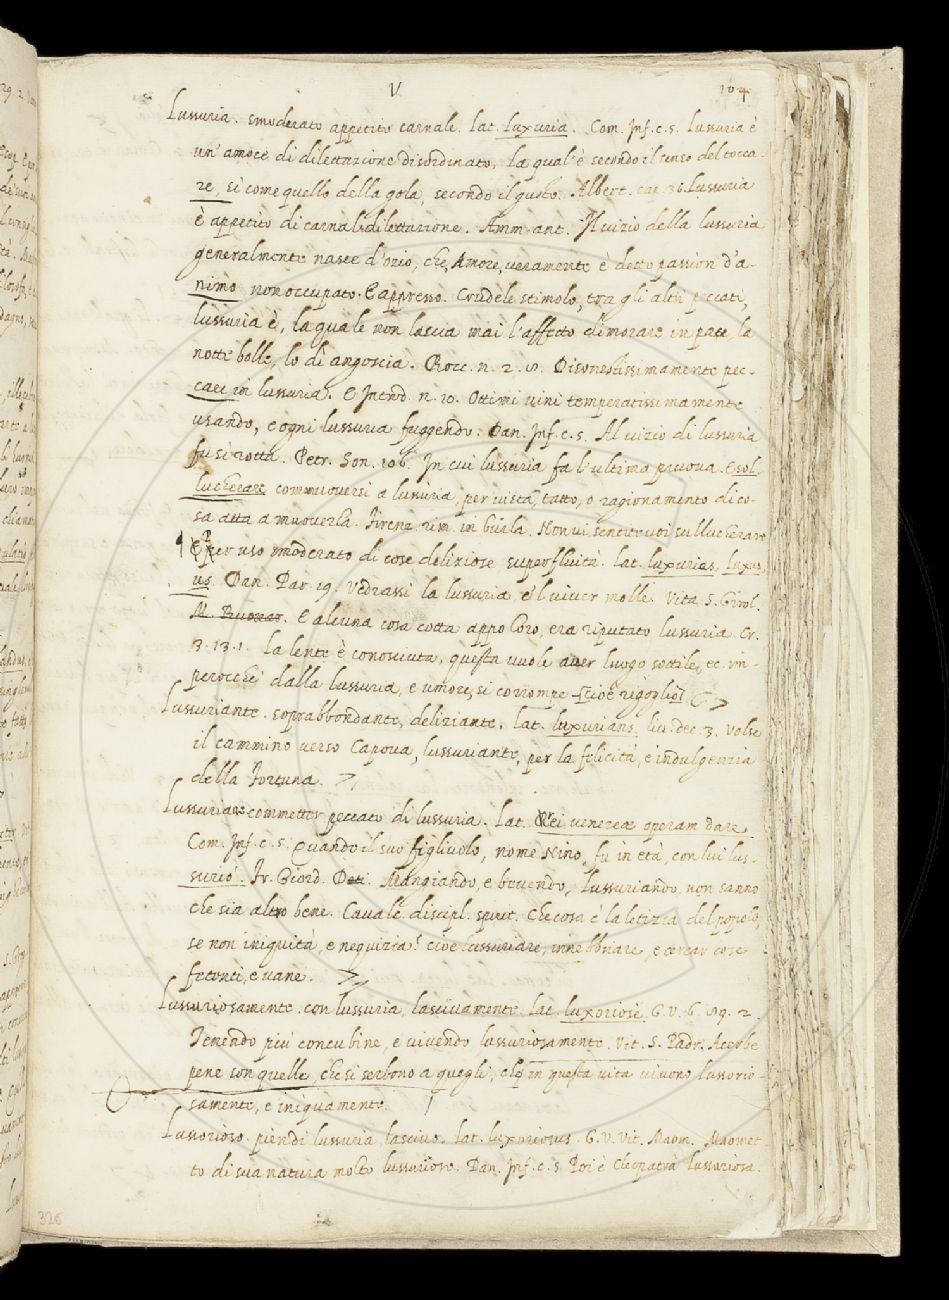 V 164
Lussuria. smoderato appetito carnale. Lat. luxuria. Com. Inf. c. 5. Lussuria è
un' amore di dilettazione disordinato, la qual' è secondo il senso del tocca-
re, sì come quello della gola, secondo il gusto. Albert. cap. 36. Lussuria
è appetito di carnal dilettazione. Amm. ant. Il vizio della lussuria
generalmente nasce d'ozio, che, Amore, veramente è detto passion d'a-
nimo non occupato. E appresso. Crudele stimolo, tra gli altri peccati,
lussuria è, la quale non lascia mai l'affetto dimorare in pace, la
notte bolle, lo dì angoscia. Bocc. n. 2. Disonestissimamente pec-
care in lussuria. E Introd. n. 10. Ottimi vini temperatissimamente
usando, e ogni lussuria fuggendo. Dan. Inf. c. 5. Al vizio di lussuria
fu sì rotta. Petr. Son. 106. In cui lussuria fa l'ultima pruova. E sol-
lucherare commuoversi a lussuria, per vista, tatto, o ragionamento di co-
sa atta a muoverla. Firenz. rim. in burla. Non vi sentite voi sollucherare
¶ E per uso smoderato di cose deliziose superfluità. Lat. luxuries, luxus,
us. Dan. Par. 19. Vedrassi la lussuria e 'l viver molle. Vita S. Girol.
E alcuna cosa cotta appo loro, era riputato lussuria. Cr.
3. 13. 1. La lente è conosciuta, questa vuole aver luogo sottile, ec. im-
perocchè dalla lussuria, e umore, si corrompe [cioè rigoglio]
Lussuriante. soprabbondante, deliziante. Lat. luxurians. Liv. dec. 3. Volse
il cammino verso Capova, lussuriante, per la felicità, e indulgenzia
della Fortuna.
Lussuriare commetter peccato di lussuria. Lat. Rei venereæ operam dare.
Com. Inf. c. 5. Quando il suo figliuolo, nome Nino, fu in età, con lui lus-
suriò. Fr. Giord. Mangiando, e bevendo, lussuriando, non sanno
che sia altro bene. Cavalc. discipl. spirit. Che cosa è la letizia del popolo,
se non iniquità, e nequizia? cioè lussuriare, innebbriare, e cercar cose
fetenti, e vane.
Lussuriosamente. con lussuria, lascivamente. Lat. luxoriosè. G. V. 6. 2.
Tenendo più concubine, e vivendo lussuriosamente. Vit. S. Padr. Acerbe
pene son quelle, che si serbono a quegli, che in questa vita vivono lussurio-
samente, e iniquamente.
Lussorioso. pien di lussuria, lascivo. Lat. luxoriosus. G. V. Vit. Maom. Maomet-
to di sua natura molto lussurioso. Dan. Inf. c. 5. Poi è Cleopatrà lussuriosa.
326